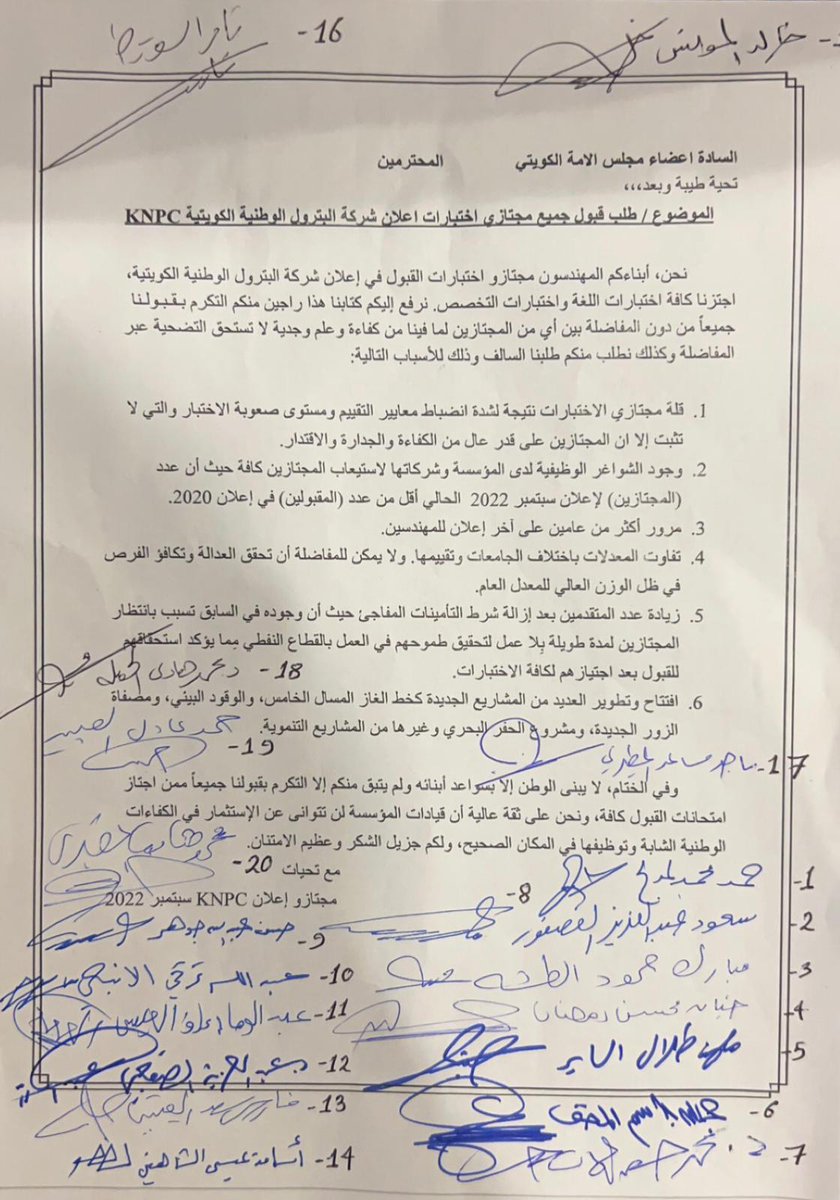 16-
خالد المونس
السادة اعضاء مجلس الامة الكويتي المحترمين
تحية طيبة وبعد،،،
الموضوع / طلب قبول جميع مجتازي اختبارات اعلان شركة البترول الوطنية الكويتية KNPC
نحن، أبناءكم المهندسون مجتازو اختبارات القبول في إعلان شركة البترول الوطنية الكويتية،
اجتزنا كافة اختبارات اللغة واختبارات التخصص. نرفع إليكم كتابنا هذا راجين منكم التكرم بقبولنا
جميعاً من دون المفاضلة بين أي من المجتازين لما فينا من كفاءة وعلم وجدية لا تستحق التضحية عبر
المفاضلة وكذلك نطلب منكم طلبنا السالف وذلك للأسباب التالية:
1. قلة مجتازي الاختبارات نتيجة لشدة انضباط معايير التقييم ومستوى صعوبة الاختبار والتي لا
تثبت إلا ان المجتازين على قدر عال من الكفاءة والجدارة والاقتدار.
2. وجود الشواغر الوظيفية لدى المؤسسة وشركاتها لاستيعاب المجتازين كافة حيث أن عدد
(المجتازين) لإعلان سبتمبر 2022 الحالي أقل من عدد (المقبولين) في إعلان 2020.
3. مرور أكثر من عامين على آخر إعلان للمهندسين.
4. تفاوت المعدلات باختلاف الجامعات وتقييمها. ولا يمكن للمفاضلة أن تحقق العدالة وتكافؤ الفرص
في ظل الوزن العالي للمعدل العام.
5. زيادة عدد المتقدمين بعد إزالة شرط التأمينات المفاجئ حيث أن وجوده في السابق تسبب بانتظار
المجتازين لمدة طويلة بلا عمل لتحقيق طموحهم في العمل بالقطاع النفطي مما يؤكد استحقاقهم
للقبول بعد اجتيازهم لكافة الاختبارات.
18- د. محمد هادي الحويلة
6. افتتاح وتطوير العديد من المشاريع الجديدة كخط الغاز المسال الخامس، والوقود البيئي، ومصفاة
الزور الجديدة، ومشروع الحفر البحري وغيرها من المشاريع التنموية.
17- ماجد مساعد المطيري
19- حمد عادل العبيد
وفي الختام، لا يبنى الوطن إلا بسواعد أبنائه ولم يتبق منكم إلا التكرم بقبولنا جميعاً ممن اجتاز
امتحانات القبول كافة، ونحن على ثقة عالية أن قيادات المؤسسة لن تتوانى عن الإستثمار في الكفاءات
الوطنية الشابة وتوظيفها في المكان الصحيح، ولكم جزيل الشكر وعظيم الامتنان.
مع تحيات
20-
مجتازو إعلان KNPC سبتمبر 2022
1- حمد محمد المدلج
8-
2- سعود عبدالعزيز العصفور
9- حسن عبدالله جوهر
3- مبارك حمود الطشه
10- عبدالله تركي الانبعي
4- جنان محسن رمضان
11- عبدالوهاب
5- مهند طلال الساير
12- د. عبدالعزيز الصقعبي
6- عبدالله جاسم المضف
13-
7- د. محمد
14- أسامة عيسى الشاهين